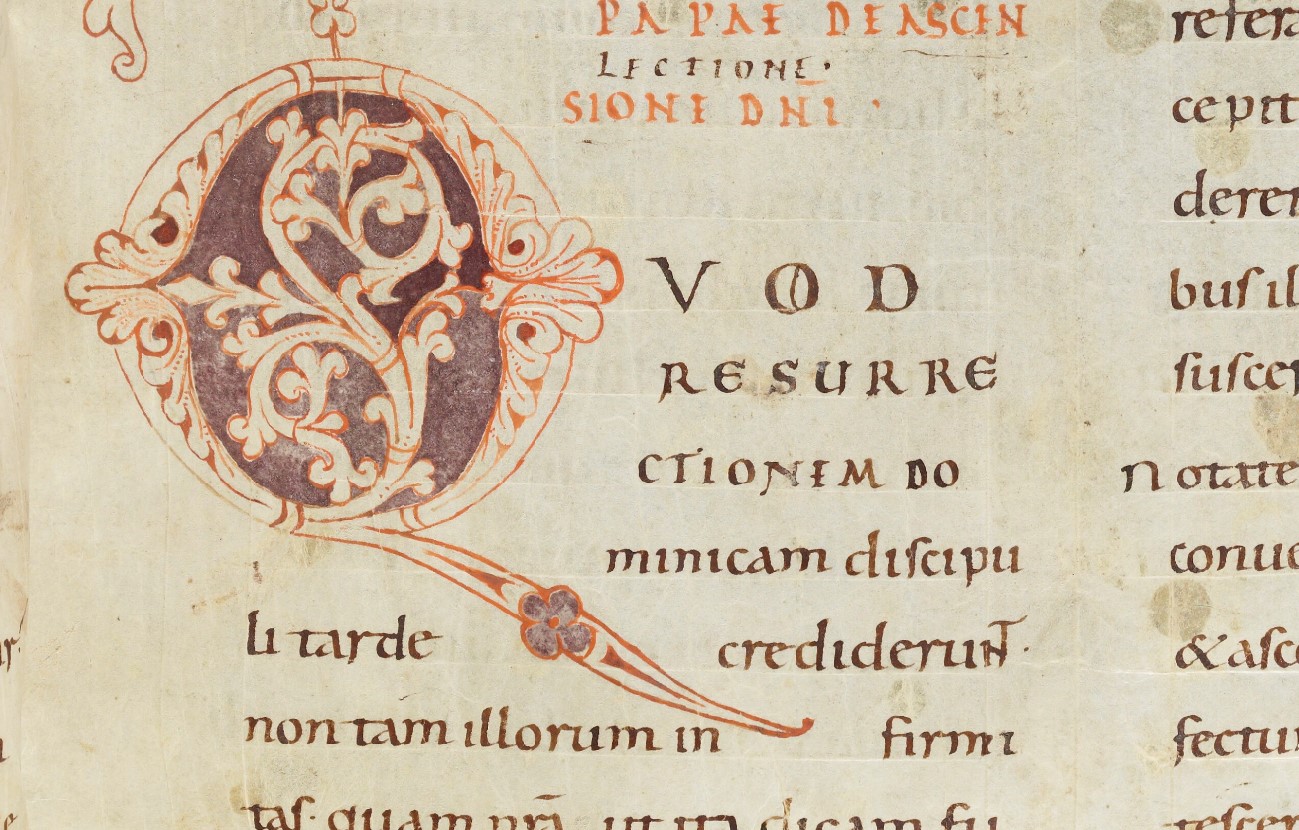 PAPAE DE ASCEN
LECTIONE·
SIONE DNI·
QVOD
RESURRE
CTIONEM DO
minicam discipu
li tarde crediderunt·
non tam illorum in firmi
tas· quam nrā ut ita dicam fu
refera
cepit
derer
bus il
suscep
Notate
conue
& asce
fectu